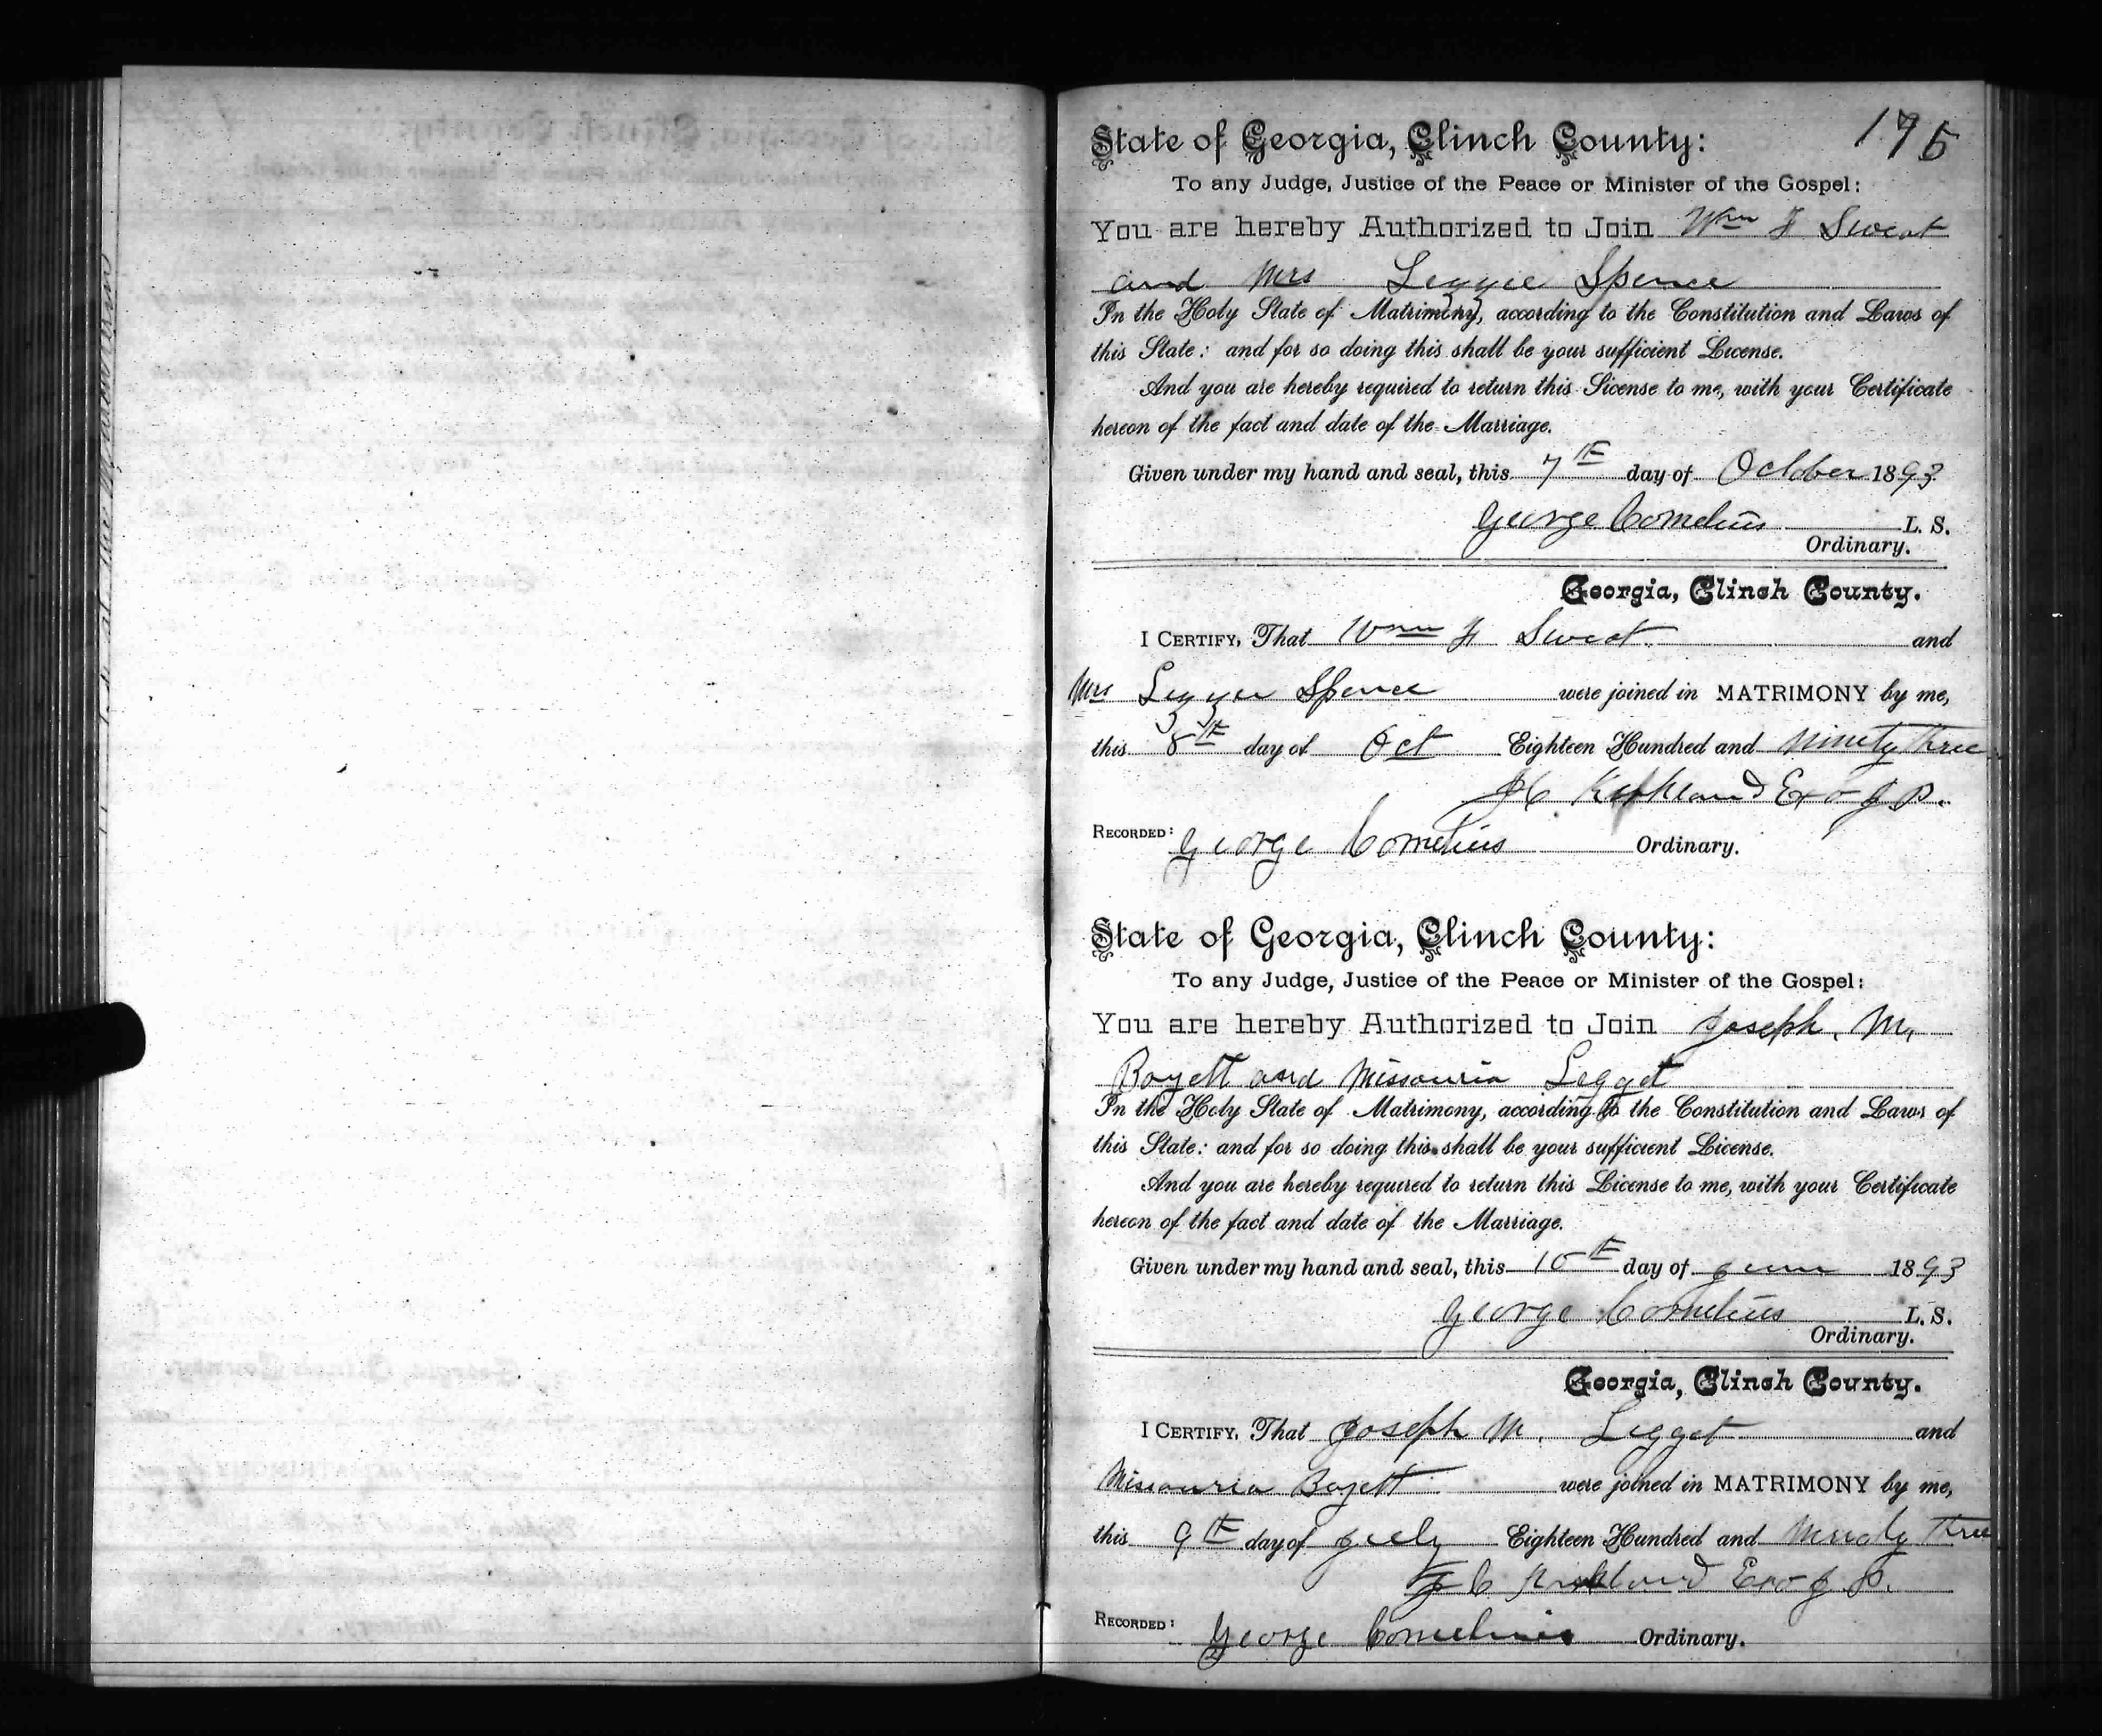 175
State of Georgia, Clinch County:
To any Judge, Justice of the Peace or Minister of the Gospel:
You are hereby Authorized to Join Wm J Sweat
and Mrs Lezzie Spence
In the Holy State of Matrimony, according to the Constitution and Laws of
this State: and for so doing this shall be your sufficient License.
And you are hereby required to return this License to me, with your Certificate
hereon of the fact and date of the Marriage.
Given under my hand and seal, this 7th day of October 1893
George Cornelius L. S.
Ordinary.
Georgia, Clinch County.
I CERTIFY, That Wm J Sweat and
Mrs Lezzie Spence were joined in MATRIMONY by me,
this 8th day of Oct Eighteen Hundred and Ninety three
J C Kirkland Exo J P.
RECORDED: George Cornelius Ordinary.
State of Georgia, Clinch County:
To any Judge, Justice of the Peace or Minister of the Gospel:
You are hereby Authorized to Join Joseph. M.
Boyett and Missouria Legget
In the Holy State of Matrimony, according to the Constitution and Laws of
this State: and for so doing this shall be your sufficient License.
And you are hereby required to return this License to me, with your Certificate
hereon of the fact and date of the Marriage.
Given under my hand and seal, this 10th day of June 1893
George Cornelius L. S.
Ordinary.
Georgia, Clinch County.
I CERTIFY, That Joseph M. Legget and
Missouria Boyett were joined in MATRIMONY by me,
this 9th day of July Eighteen Hundred and Ninety three
J C Kirkland Exo J P.
RECORDED: George Cornelius Ordinary.